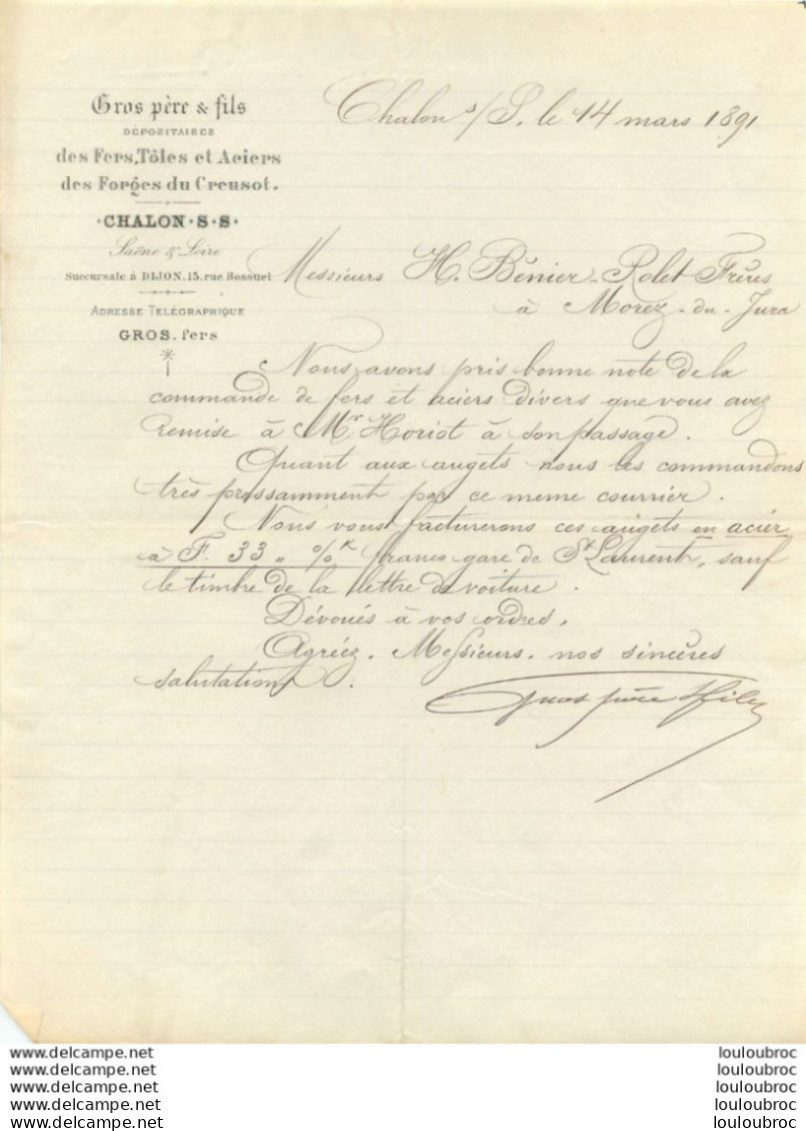 Gros père & fils
DÉPOSITAIRES
des Fers, Tôles et Aciers
des Forges du Creusot.
CHALON·S·S·
Saône & Loire
Succursale à DIJON, 15, rue Bossuet
ADRESSE TÉLÉGRAPHIQUE
GROS. fers
Chalon s/S. le 14 mars 1891
Messieurs H. Bénier-Rolet Frères
à Morez-du-Jura
Nous avons pris bonne note de la
commande de fers et aciers divers que vous avez
remise à Mr Horiot à son passage.
Quant aux augets nous les commandons
très pressamment par ce meme courrier.
Nous vous facturerons ces augets en acier
à F. 33 " %k franco gare de St Laurent, sauf
le timbre de la lettre de voiture.
Dévoués à vos ordres,
Agréez, Messieurs, nos sincères
salutations.
Gros père & fils
www.delcampe.net
www.delcampe.net
www.delcampe.net
www.delcampe.net
www.delcampe.net
louloubroc
louloubroc
louloubroc
louloubroc
louloubroc